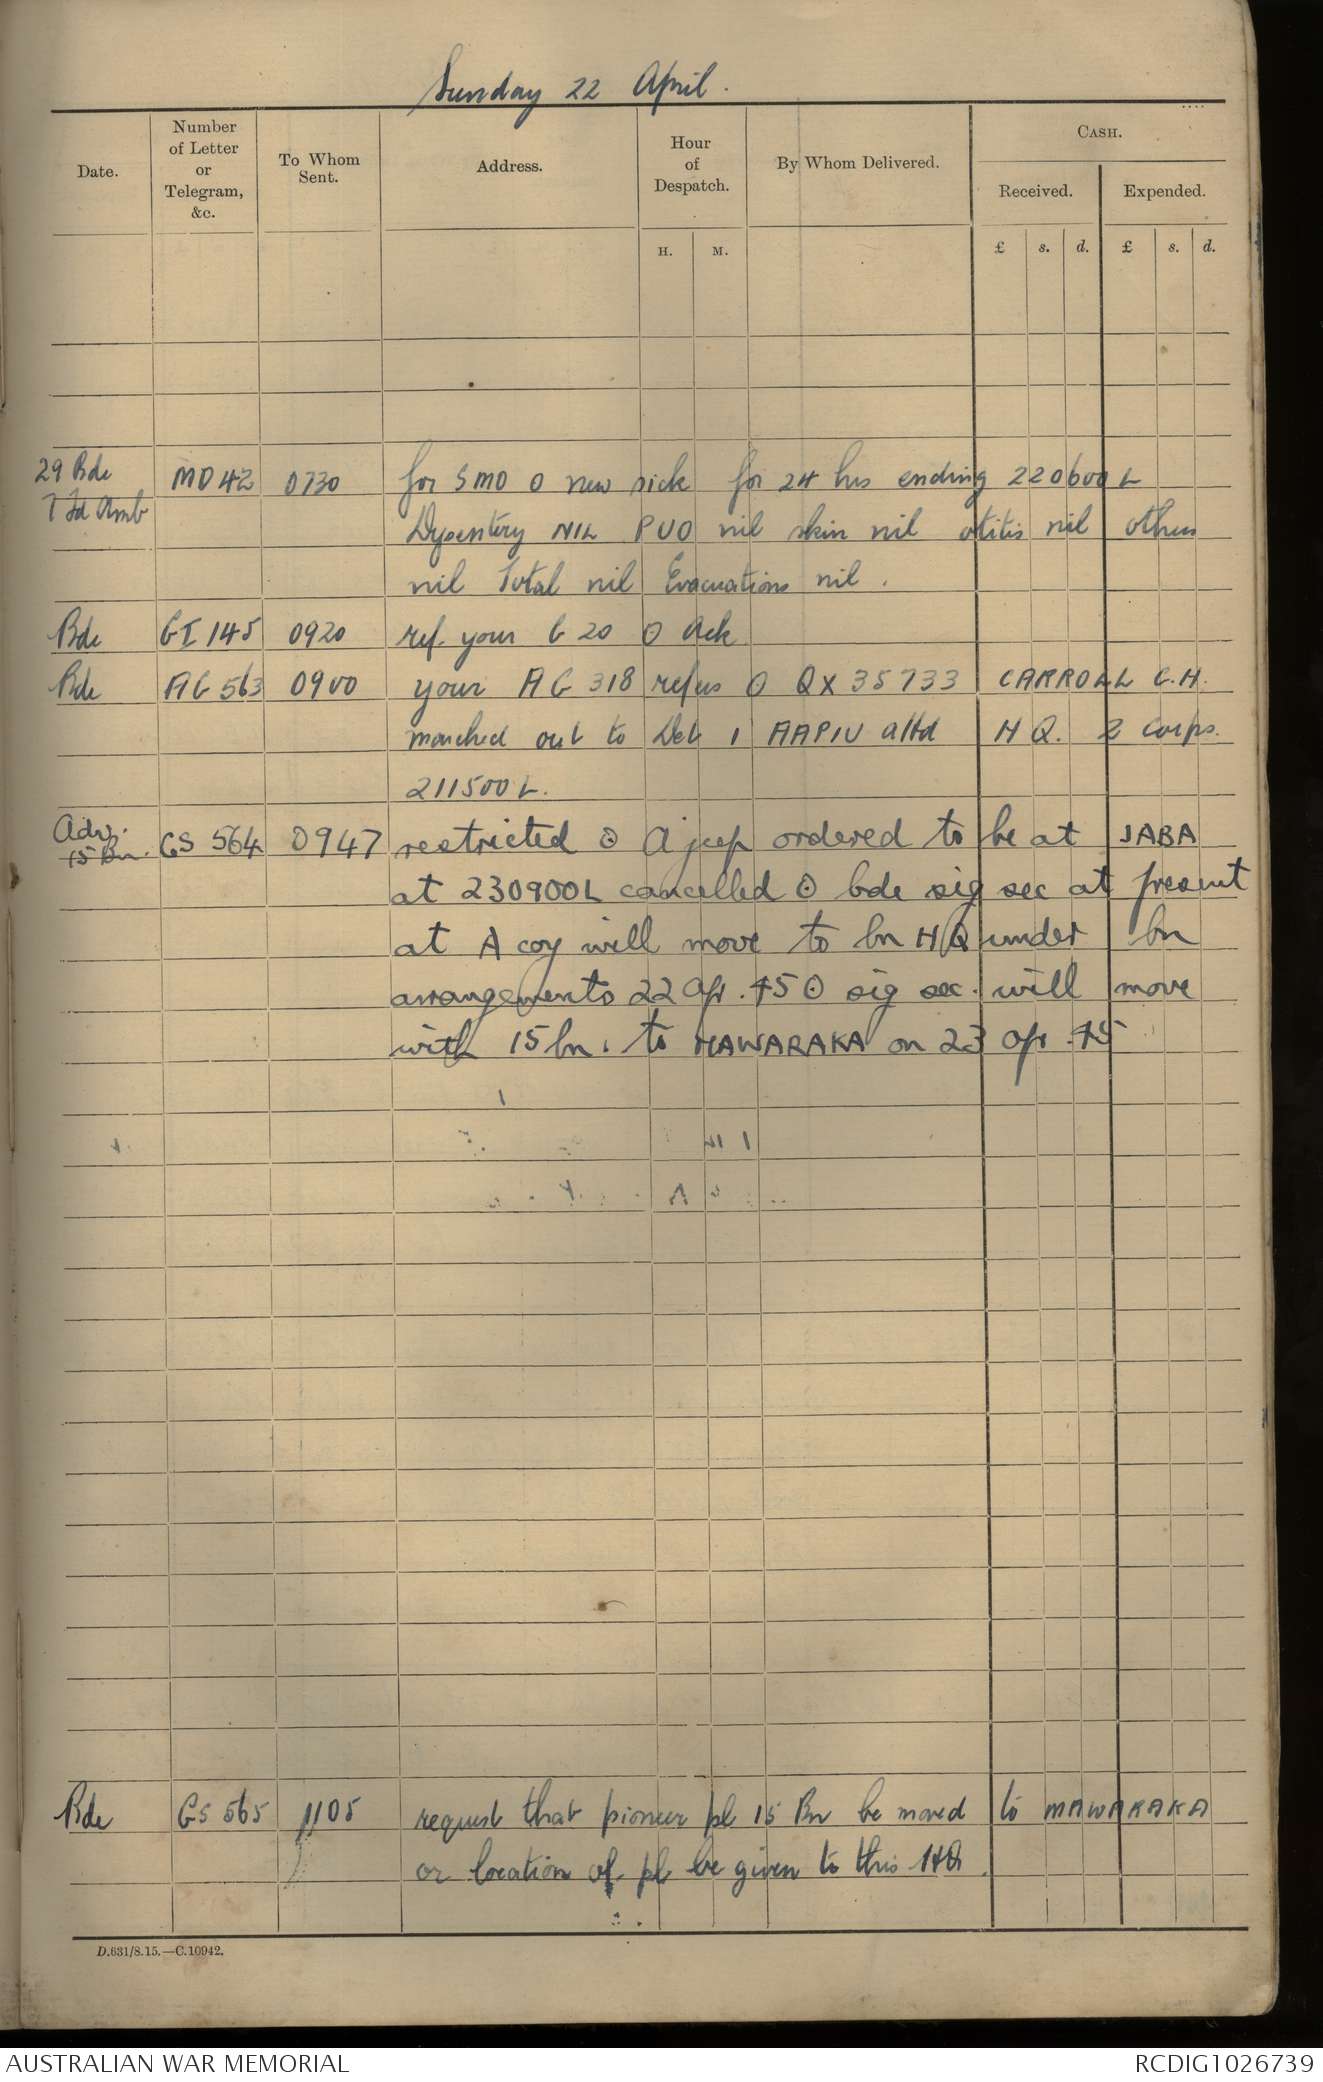 Sunday 22 April.
Date.
Number of Letter or Telegram, &c.
To Whom Sent.
Address.
Hour of Despatch.
By Whom Delivered.
CASH.
Received.
Expended.
H. M. £ s. d. £ s. d.
29 Bde MD 42 0730 for SMO O new sick for 24 hrs ending 220600L
7 Fd Amb Dysentery NIL PUO nil skin nil otitis nil others
nil Total nil Evacuations nil.
Bde GI 145 0920 ref. your G 20 O Ack
Bde AG 563 0900 your AG 318 refers O QX 35733 CARROLL C.H.
marched out to Det 1 AAPIU attd HQ. 2 Corps.
211500L.
Adv. 15 Bn. GS 564 0947 restricted ⊙ A jeep ordered to be at JABA
at 230900L cancelled ⊙ bde sig sec at present
at A coy will move to bn HQ under bn
arrangements 22 Apr. 45 ⊙ sig sec. will move
with 15 bn. to MAWARAKA on 23 Apr. 45
Bde GS 565 1105 request that pioneer pl 15 Bn be moved to MAWARAKA
or location of pl be given to this HQ.
D.631/8.15.—C.10942.
AUSTRALIAN WAR MEMORIAL
RCDIG1026739